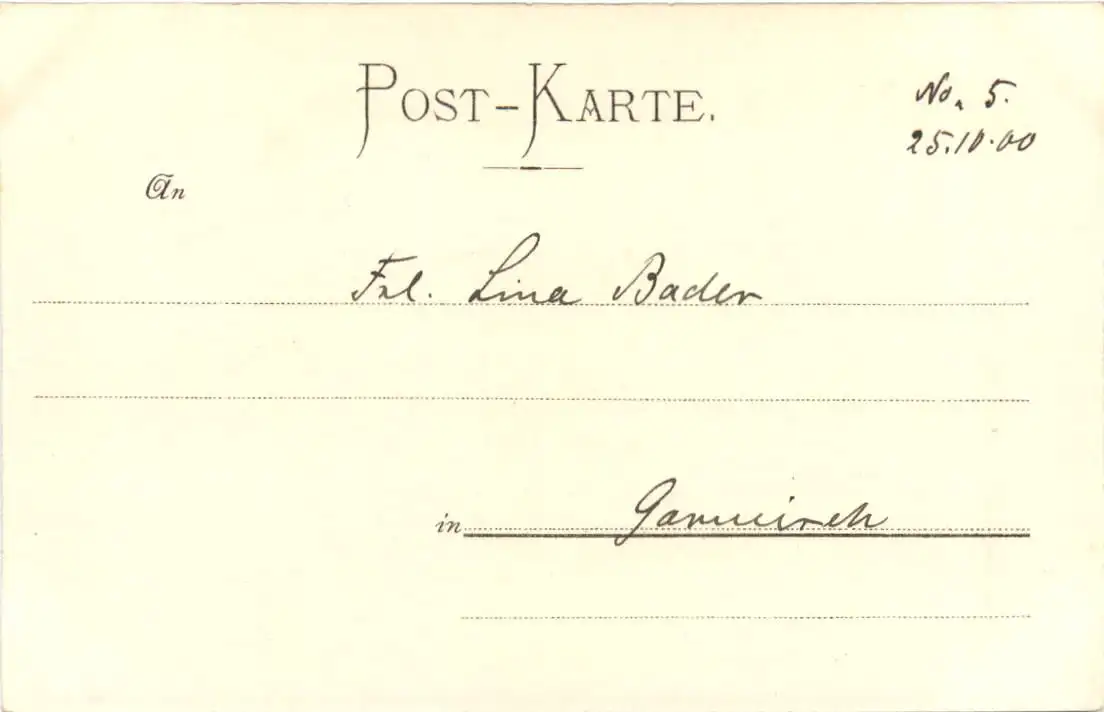 POST-KARTE.
No. 5.
25.10.00
An
Frl. Lina Bader
in Garmisch